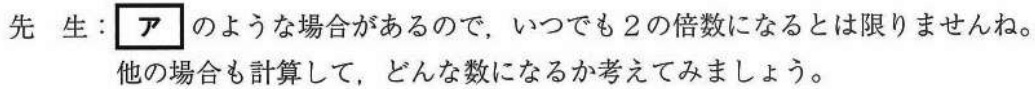 先　生：ア のような場合があるので，いつでも２の倍数になるとは限りませんね。
他の場合も計算して，どんな数になるか考えてみましょう。